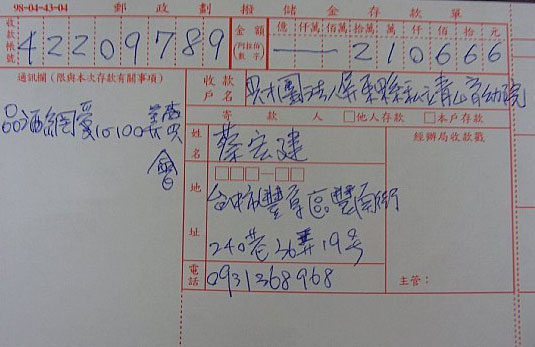 98-04-43-04 郵政劃撥儲金存款單
收款帳號 42209789 金額(阿拉伯數字) 億 仟萬 佰萬 拾萬 萬 仟 佰 拾 元
210666
通訊欄(限與本次存款有關事項) 收款戶名 財團法人屏東縣私立青山育幼院
寄款人 □他人存款 □本戶存款
品酒網愛10100
會
姓名 蔡宏建 經辦局收款戳
地址 □□□-□□
台中市豐原區豐南街
240巷36弄19号
電話 0931368968 主管：